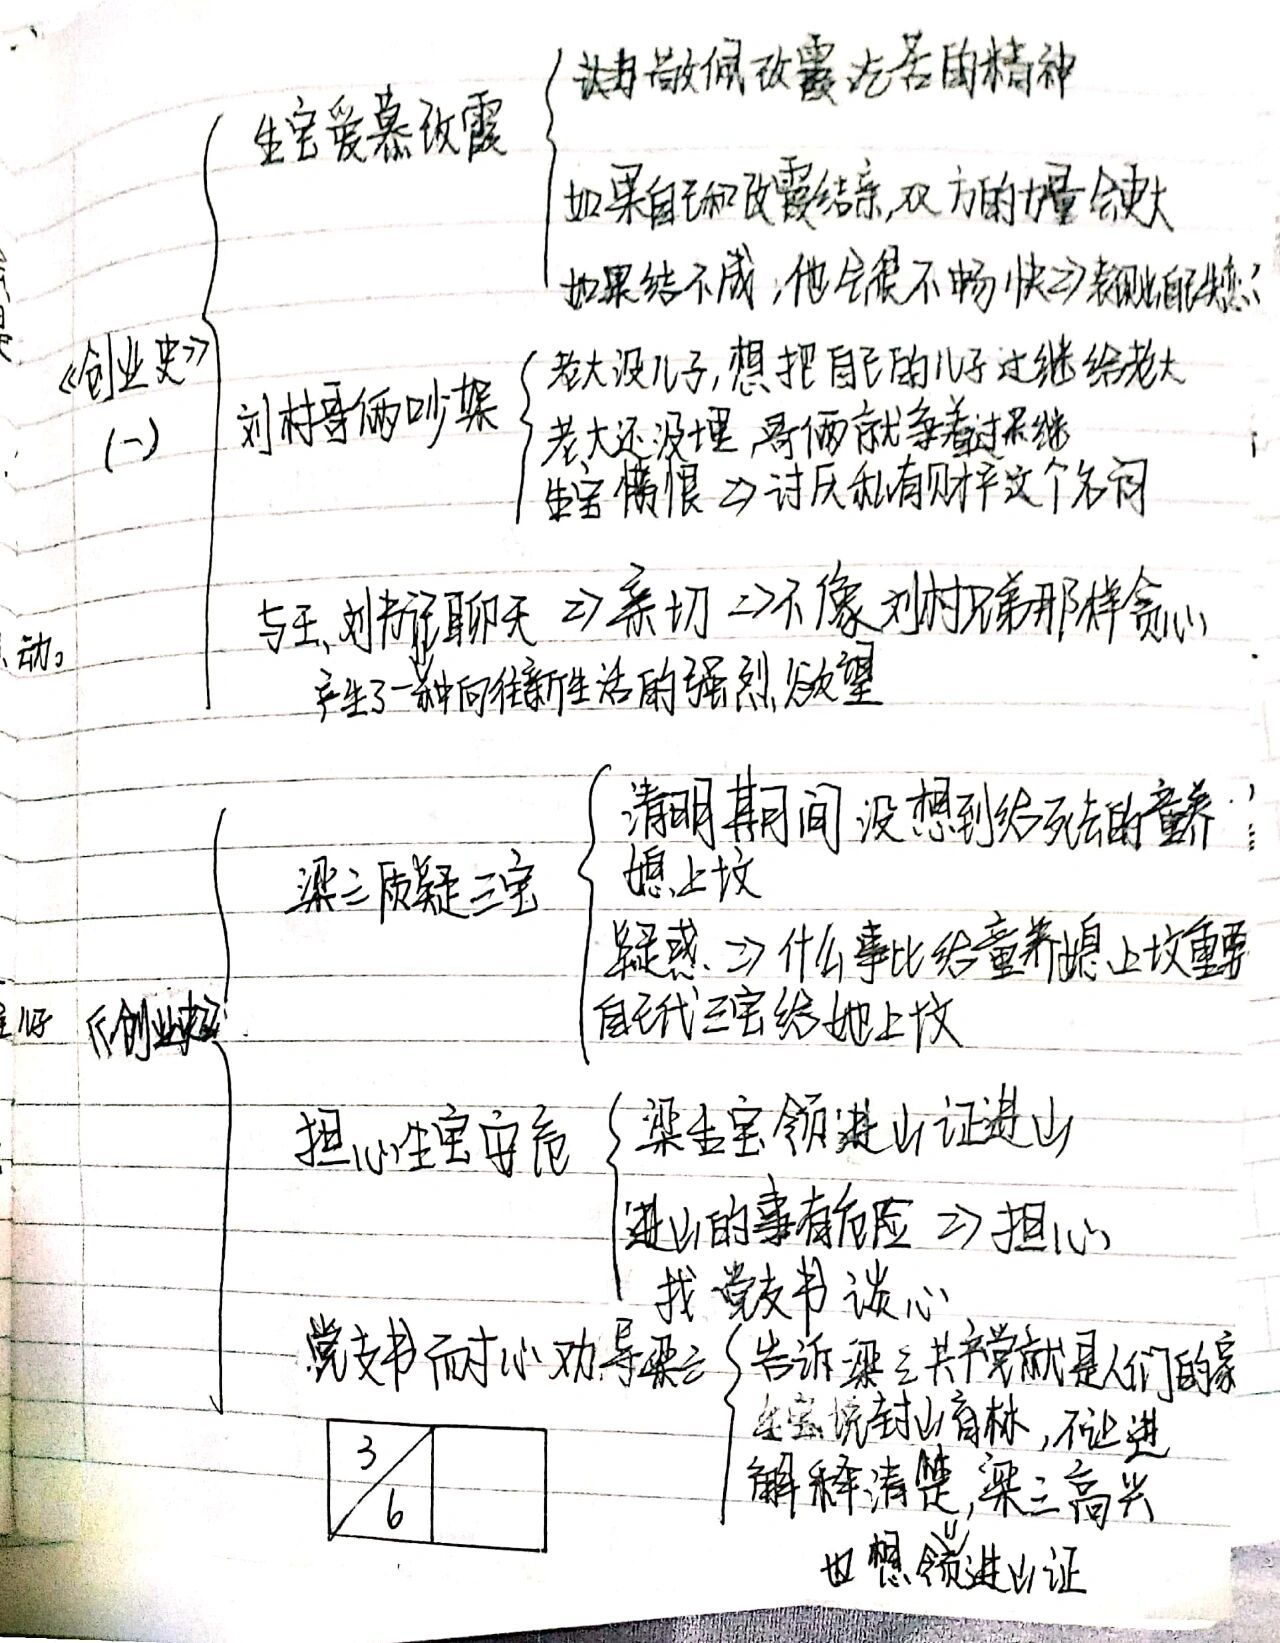 生宝爱慕改霞
敬佩改霞吃苦的精神
如果自己和改霞结亲,双方的力量会更大
如果结不成,他会很不畅快⇒表现出自己失恋
《创业史》
(一)
刘村哥俩吵架
老大没儿子,想把自己的儿子过继给老大
老大还没埋,哥俩就争着过继
生宝愤恨⇒讨厌私有财产这个名词
与王、刘书记聊天⇒亲切⇒不像刘村兄弟那样贪心
产生了一种向往新生活的强烈欲望
动。
梁三质疑三宝
清明期间没想到给死去的童养
媳上坟
疑惑⇒什么事比给童养媳上坟重要
自己代三宝给她上坟
《创业史》
担心生宝安危
梁生宝领进山证进山
进山的事有危险⇒担心
找党支书谈心
党支书耐心劝导梁三
告诉梁三共产党就是人们的家
生宝说封山育林,不让进
解释清楚,梁三高兴
也想领进山证
3
6